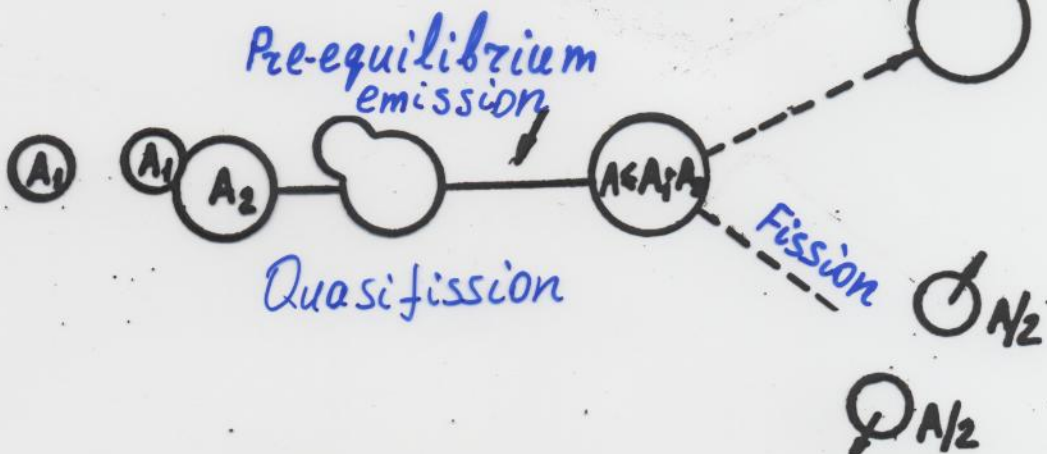 Pre-equilibrium
emission
A₁
A₁
A₂
Quasifission
Fission
A/2
A/2